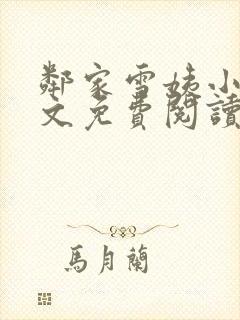 鄰家雪姨小
文免費閱讀
馬月蘭